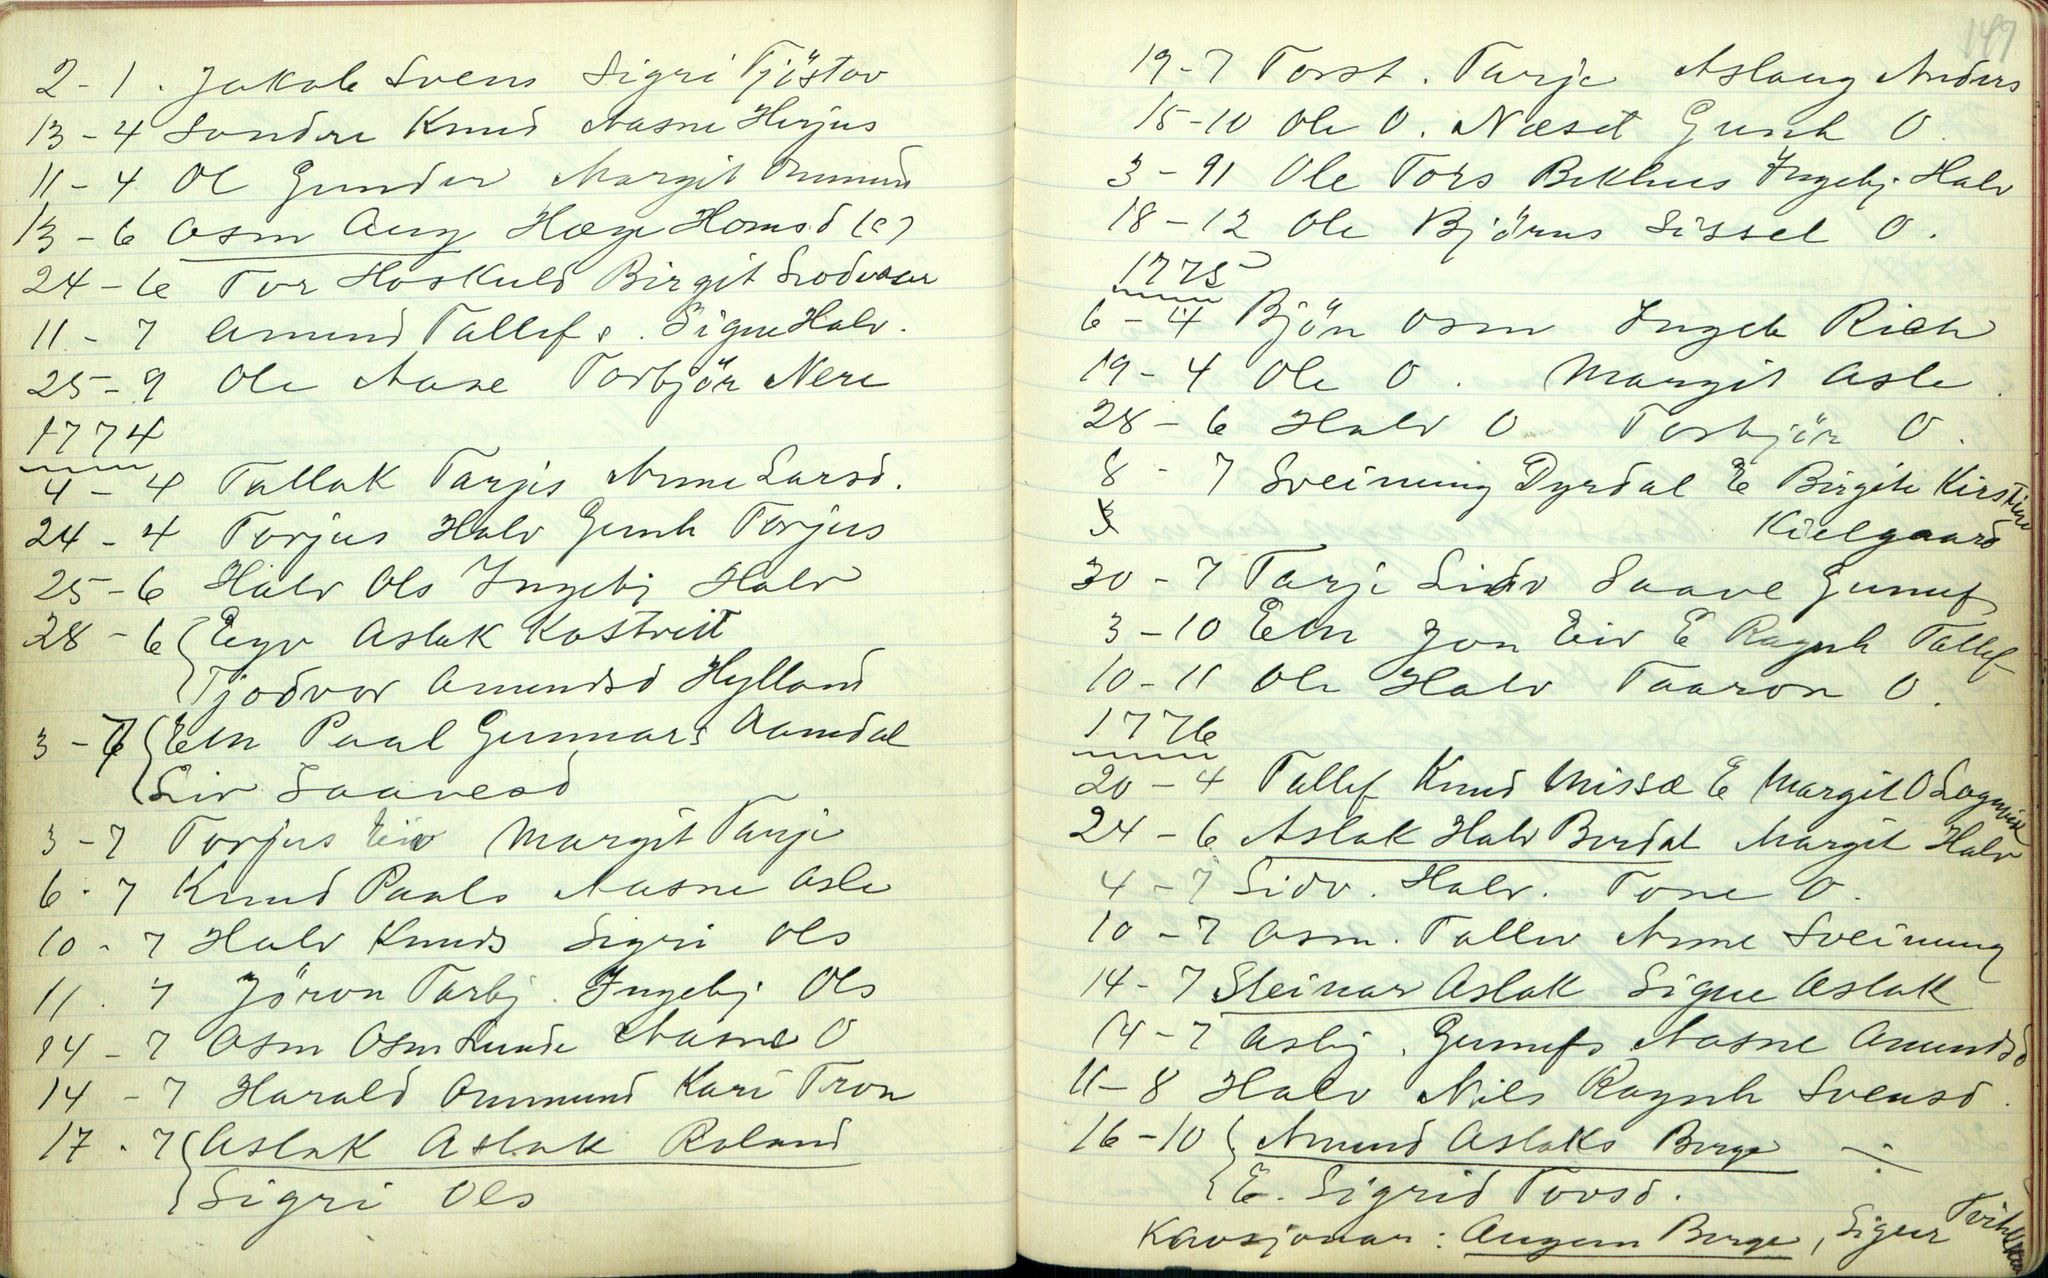 2 - 1 . Jakob Svens Sigri Tjöstov
13 - 4 Sondre Knud Aasne Herjus
11 - 4 Ol Gunder Margit Ommund
13 - 6 Osm Aug Hæge Homsd (?)
24 - 6 Tor Hoskuld Birgit
11 - 7 Amund Tallefs . Signe Halv.
25 - 9 Ole Aase Torbjör Nere
1774
4 - 4 Tallak Tarjes Anne Larsd.
24 - 4 Torjus Halv Gunh Torjus
25 - 6 Halv Ols Ingebj Halv
28 - 6 Eyv Aslak Kostveit
Tjodvor Amundsd Hylland
3 - 7 Em Paal Gunnars Aamdal
Liv Saavesd
3 - 7 Torjus Eiv Margit Tarje
6 - 7 Knud Paals Aasne Asle
10 - 7 Halv Knuds Sigri Ols
11 . 7 Jöron Torbj . Ingebj Ols
14 - 7 Osm Osm Lunde Aasne O
14 - 7 Harald Ommund Kari Tron
17 . 7 Aslak Aslak Roland
Sigri Ols
149
19 - 7 Torst . Tarje Aslaug Anders
15 - 10 Ole O . Næset Gunh O .
3 - 91 Ole Tors Bekhus Ingebj . Halv
18 - 12 Ole Björns Sissel O .
1775
6 - 4 Bjön Osm Ingeb Rich
19 - 4 Ole O . Margit Asle .
28 - 6 Halv O Torbjör O .
8 - 7 Sveinung Dyrdal E Birgite Kirstine
3 Kielgaard
30 - 7 Tarje Sidv Saave Gunuf
3 - 10 Em Jon Eiv E Ragnh Tallef
10 - 11 Ole Halv Taaron O .
1776
20 - 4 Tallef Knud Missæ E Margit O Lognvik
24 - 6 Aslak Halv Berdal Margit Halv
4 - 7 Sidv . Halv . Tone O .
10 - 7 Osm . Tallev Anne Sveinung
14 - 7 Steinar Aslak Signe Aslak
14 - 7 Asbj . Gunufs Aasne Amundsd
11 - 8 Halv Nils Ragnh Svensd .
16 - 10 Amund Aslaks Berge ÷
E . Sigrid Tovsd .
Kavsjonar : Augun Berge , Sigur